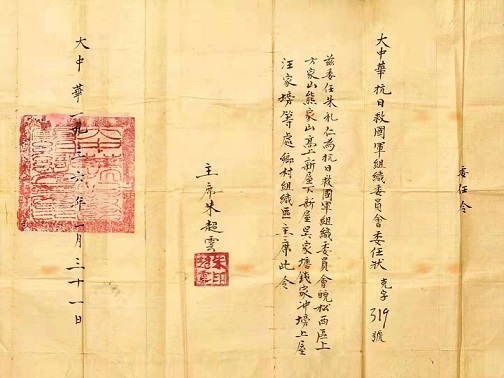 委任令
大中華抗日救國軍組織委員會委任狀 克字319號
茲委任朱礼仁為抗日救國軍組織委員會皖松西區上
方家山熊家山窩上新屋下新屋吴家塘錢家冲塝上屋
汪家塝等處鄉村組織區主席此令
主席朱超雲
大中華一九三六年一月三十一日